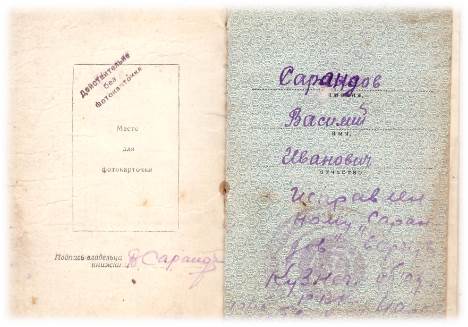 Действительно
без
фотокарточки
Место
для
фотокарточки
Подпись владельца
книжки
В Саранд
Сарандов
фамилия
Василий
имя
Иванович
отчество
Исправлен
ному "Саран
дов"
Кузнец.